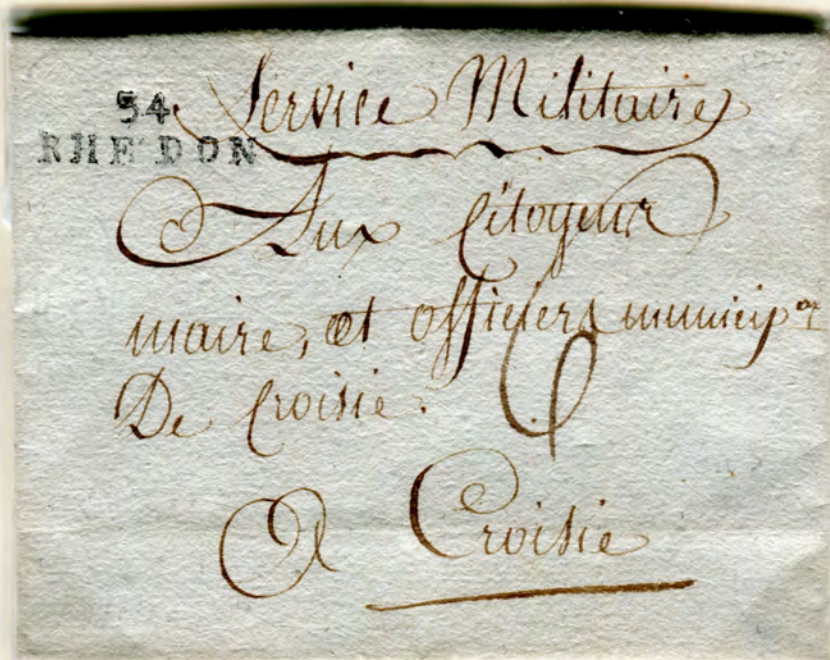 54
RHEDON
Service Militaire
Aux Citoyens
maire, et officiers municip.aux
De Croisie.
6
A Croisie